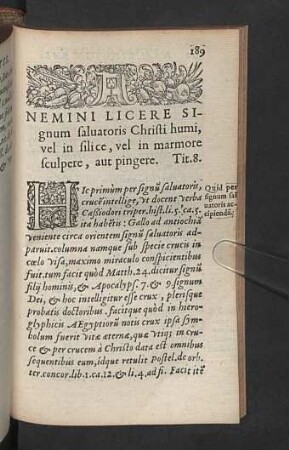 189
NEMINI LICERE SI-
gnum saluatoris Christi humi,
vel in silice, vel in marmore
sculpere, aut pingere. Tit.8.
HIc primùm per signũ saluatoris,
crucẽ intellige, vt docent verba
Cassiodori tripar. hist. li.5. ca.5.
ita habẽtia: Gallo ad antiochiã
veniente circa orientem signũ saluatoris ad-
paruit. columna namque sub specie crucis in
cœlo visa, maximo miraculo conspicientibus
fuit. tum facit quòd Matth. 24. dicitur signũ
filij hominis, & Apocalyps. 7. & 9 signum
Dei, & hoc intelligitur esse crux, plerisque
probatis doctoribus. facitque quòd in hiero-
glyphicis AEgyptiorũ notis crux ipsa sym-
bolum fuerit vitæ æternæ, quæ vtiq; in cru-
ce & per crucem à Christo data est omnibus
sequentibus eum, idque retulit Postel. de or-
ter. concor. lib. 1. ca. 12. & li. 4. ad fi. Facit itẽ
Quid per
signum sal
uatoris ac-
cipiendũ.